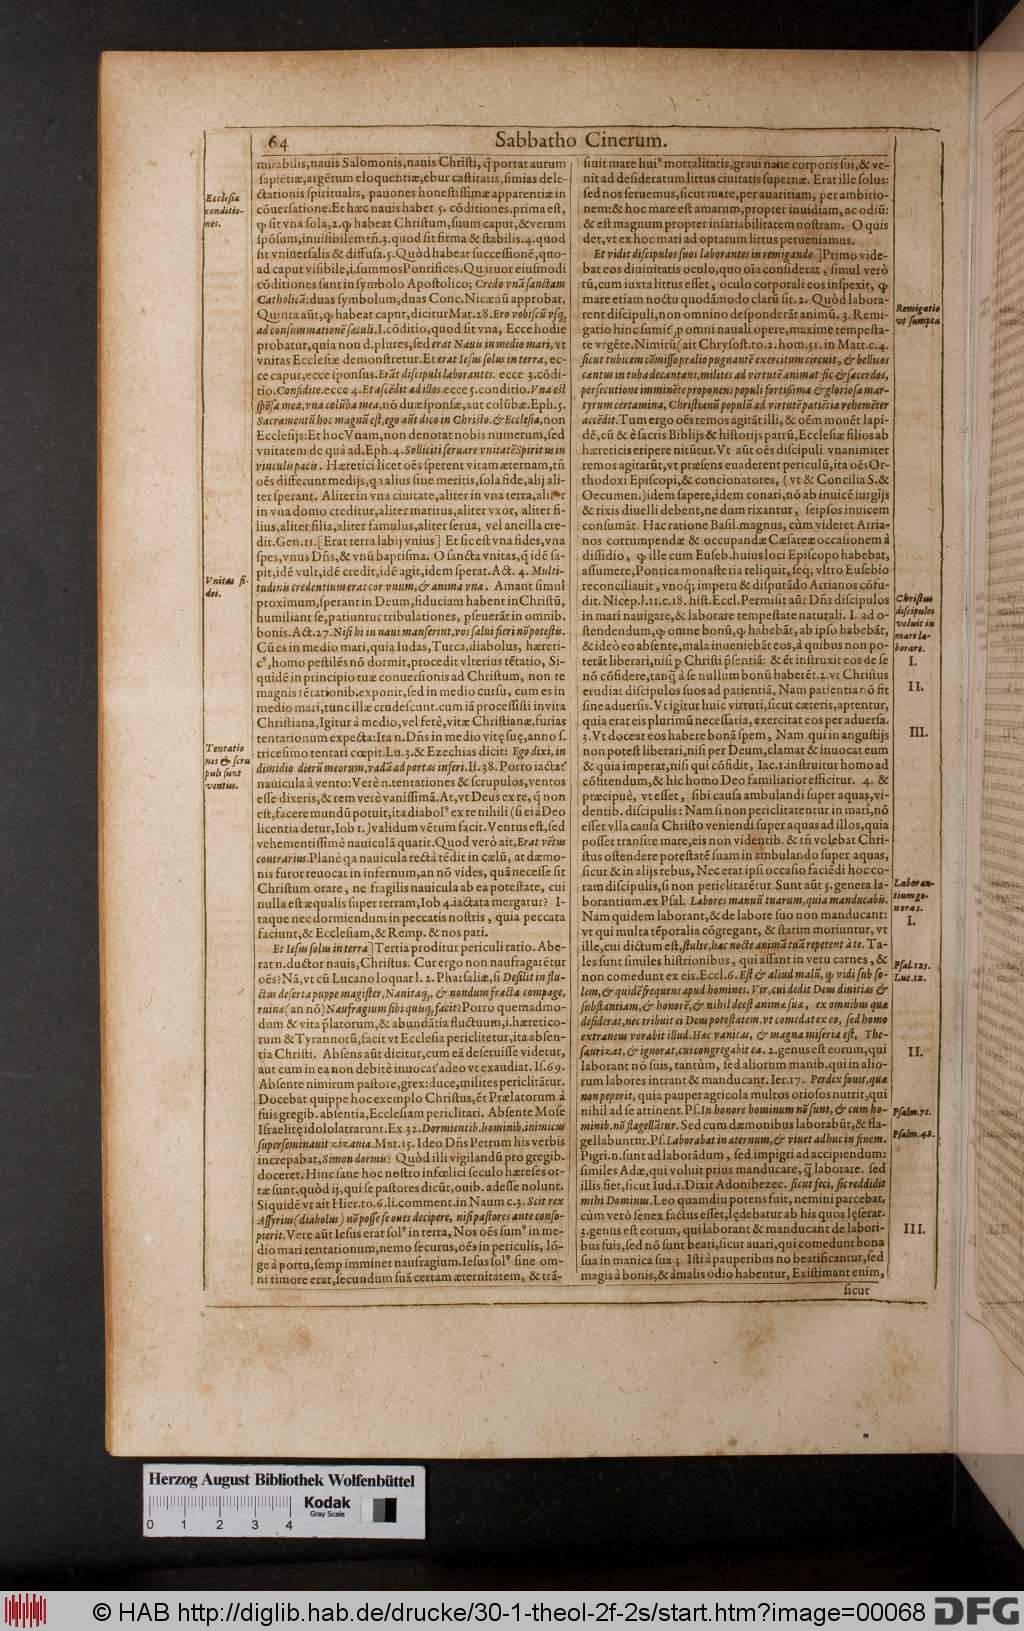 64
Sabbatho Cinerum.
mirabilis, nauis Salomonis, nauis Christi, q̃ portat aurum
sapiẽtiæ, argẽtum eloquentiæ, ebur castitatis, simias dele-
ctationis spiritualis, pauones honestissimæ apparentiæ in
cõuersatione. Et hæc nauis habet 5. cõditiones. prima est,
ꝙ sit vna sola, 2. ꝙ habeat Christum, suum caput, & verum
spõsum, inuisibilem tñ. 3. quod sit firma & stabilis. 4. quod
sit vniuersalis & diffusa. 5. Quòd habeat successionẽ, quo-
ad caput visibile, i. summos Pontifices. Quatuor eiusmodi
cõditiones sunt in symbolo Apostolico; Credo vnã sanctam
Catholicã: duas symbolum, duas Conc. Nicænũ approbat.
Quinta aũt, ꝙ habeat caput, dicitur Mat. 28. Ero vobiscũ vsq;
ad consummationẽ sæculi. I. cõditio, quod sit vna, Ecce hodie
probatur, quia non d. plures, sed erat Nauis in medio mari, vt
vnitas Ecclesiæ demonstretur. Et erat Iesus solus in terra, ec-
ce caput, ecce sponsus. Erãt discipuli laborantes. ecce 3. cõdi-
tio. Confidite. ecce 4. Et ascẽdit ad illos. ecce 5. conditio. Vna est
spõsa mea, vna colũba mea, nõ duæ sponsæ, aut colũbæ. Eph. 5.
Sacramentũ hoc magnũ est, ego aũt dico in Christo. & Ecclesia, non
Ecclesijs: Et hoc Vnam, non denotat nobis numerum, sed
vnitatem de qua ad. Eph. 4. Solliciti seruare vnitatẽ Spiritus in
vinculu pacis. Hæretici licet oẽs sperent vitam æternam, tñ
oẽs differunt medijs, qa alius sine meritis, sola fide, alij ali-
ter sperant. Aliter in vna ciuitate, aliter in vna terra, aliter
in vna domo creditur, aliter maritus, aliter vxor, aliter fi-
lius, aliter filia, aliter famulus, aliter serua, vel ancilla cre-
dit. Gen. 11. [Erat terra labij vnius] Et sic est vna fides, vna
spes, vnus Dñs, & vnũ baptisma. O sancta vnitas, q̃ idẽ sa-
pit, idẽ vult, idẽ credit, idẽ agit, idem sperat. Act. 4. Multi-
tudinis credentium erat cor vnum, & anima vna. Amant simul
proximum, sperant in Deum, fiduciam habent in Christũ,
humiliant se, patiuntur tribulationes, pseuerãt in omnib.
bonis. Act. 27. Nisi hi in naui manserint, vos salui fieri nõ potestis.
Cũ es in medio mari, quia Iudas, Turca, diabolus, hæreti-
cꝰ, homo pestilẽs nõ dormit, procedit vlterius tẽtatio, Si-
quidẽ in principio tuæ conuersionis ad Christum, non te
magnis tẽtationib. exponit, sed in medio cursu, cum es in
medio mari, tunc illæ crudescunt. cum iã processisti in vita
Christiana, Igitur à medio, vel ferè, vitæ Christianæ, furias
tentationum expecta: Ita n. Dñs in medio vitę suę, anno s.
tricesimo tentari cœpit. Lu. 3. & Ezechias dicit: Ego dixi, in
dimidio dierũ meorum, vadã ad portas inferi. Is. 38. Porro iactat
nauicula à vento: Verè n. tentationes & scrupulos, ventos
esse dixeris, & rem verè vanissimã. At, vt Deus ex re, q̃ non
est, facere mundũ potuit, ita diabolꝰ ex re nihili (si ei à Deo
licentia detur, Iob 1.) validum vẽtum facit. Ventus est, sed
vehementissimè nauiculã quatit. Quod verò ait, Erat vẽtus
contrarius. Planè qa nauicula rectà tẽdit in cælũ, at dæmo-
nis furor reuocat in infernum, an nõ vides, quã necesse sit
Christum orare, ne fragilis nauicula ab ea potestate, cui
nulla est æqualis super terram, Iob 4. iactata mergatur? I-
taque nec dormiendum in peccatis nostris, quia peccata
faciunt, & Ecclesiam, & Remp. & nos pati.
Et Iesus solus in terra] Tertia proditur periculi ratio. Abe-
rat n. ductor nauis, Christus. Cur ergo non naufragarẽtur
oẽs? Nã, vt cũ Lucano loquar l. 2. Pharsaliæ, si Desilit in flu-
ctus deserta puppe magister, Nauitaq;, & nondum fracta compage,
ruina (an nõ) Naufragium sibi quisq; facit? Porro quemadmo-
dum & vita p̃latorum, & abundãtia fluctuum, i. hæretico-
rum & Tyrannorũ, facit vt Ecclesia periclitetur, ita absen-
tia Christi. Absens aũt dicitur, cum eã deseruisse videtur,
aut cum in ea non debitè inuocat adeo vt exaudiat. Is. 69.
Absente nimirum pastore, grex: duce, milites periclitãtur.
Docebat quippe hoc exemplo Christus, ẽt Prælatorum à
suis gregib. absentia, Ecclesiam periclitari. Absente Mose
Israelitę idololatrarunt. Ex. 32. Dormientib. hominib. inimicus
superseminauit zizania. Mat. 15. Ideo Dñs Petrum his verbis
increpabat, Simon dormis? Quòd illi vigilandũ pro gregib.
doceret. Hinc sane hoc nostro infœlici seculo hæreses or-
tæ sunt, quòd ij, qui se pastores dicũt, ouib. adesse nolunt.
Siquidẽ vt ait Hier. to. 6. li. comment. in Naum c. 3. Scit rex
Assyrius (diabolus) nõ posse se oues decipere, nisi pastores ante conso-
pierit. Vere aũt Iesus erat solꝰ in terra, Nos oẽs sumꝰ in me-
dio mari tentationum, nemo securus, oẽs in periculis, lõ-
ge à portu, semp imminet naufragium. Iesus solꝰ sine om-
ni timore erat, secundum suã certam æternitatem, & trã-
siuit mare huiꝰ mortalitatis, graui naue corporis sui, & ve-
nit ad desideratum littus ciuitatis supernæ. Erat ille solus:
sed nos seruemus, sicut mare, per auaritiam, per ambitio-
nem: & hoc mare est amarum, propter inuidiam, ac odiũ:
& est magnum propter insatiabilitatem nostram. O quis
det, vt ex hoc mari ad optatum littus perueniamus.
Et vidit discipulos suos laborantes in remigando.] Primo vide-
bat eos diuinitatis oculo, quo oĩa considerat, simul verò
tũ, cum iuxta littus esset, oculo corporali eos inspexit, ꝙ
mare etiam noctu quodãmodo clarũ sit. 2. Quòd labora-
rent discipuli, non omnino desponderãt animũ. 3. Remi-
gatio hinc sumit, p omni nauali opere, maxime tempesta-
te vrgẽte. Nimirũ (ait Chrysost. to. 2. hom. 51. in Matt. c. 4.
sicut tubicem cõmisso prælio pugnantẽ exercitum circuit, & bellicos
cantus in tuba decantans, milites ad virtutẽ animat: sic & sacerdos,
persecutione imminẽte proponens populi fortissima & gloriosa mar-
tyrum certamina, Christianũ populũ ad virtutẽ patiẽtia vehemẽter
accẽdit. Tum ergo oẽs remos agitãt illi, & oẽm mouẽt lapi-
dẽ, cũ & è sacris Biblijs & historijs patrũ, Ecclesiæ filios ab
hæreticis eripere nitũtur. Vt aũt oẽs discipuli vnanimiter
remos agitarũt, vt præsens euaderent periculũ, ita oẽs Or-
thodoxi Episcopi, & concionatores, (vt & Concilia S. &
Oecumen.) idem sapere, idem conari, nõ ab inuicẽ iurgijs
& rixis diuelli debent, ne dum rixantur, seipsos inuicem
consumãt. Hac ratione Basil. magnus, cùm videret Arria-
nos corrumpendæ & occupandæ Cæsareæ occasionem à
dissidio, ꝙ ille cum Euseb. huius loci Episcopo habebat,
assumere, Pontica monasteria reliquit, seq; vltro Eusebio
reconciliauit, vnoq; impetu & disputãdo Arrianos cõfu-
dit. Nicep. l. 11. c. 18. hist. Eccl. Permisit aũt Dñs discipulos
in mari nauigare, & laborare tempestate naturali. I. ad o-
stendendum, ꝙ omne bonũ, ꝙ habebãt, ab ipso habebãt,
& ideò eo absente, mala inueniebãt eos, à quibus non po-
terãt liberari, nisi p Christi p̃sentiã; & ẽt instruxit eos de se
nõ cõfidere, tanq̃ à se nullum bonũ haberẽt. 2. vt Christus
erudiat discipulos suos ad patientiã, Nam patientia nõ fit
sine aduersis. Vt igitur huic virtuti, sicut cæteris, aptentur,
quia erat eis plurimũ necessaria, exercitat eos per aduersa.
3. Vt doceat eos habere bonã spem, Nam qui in angustijs
non potest liberari, nisi per Deum, clamat & inuocat eum
& quia imperat, nisi qui cõfidit, Iac. 1. instruitur homo ad
cõfitendum, & hic homo Deo familiarior efficitur. 4. &
præcipuè, vt esset, sibi causa ambulandi super aquas, vi-
dentib. discipulis: Nam si non periclitarentur in mari, nõ
esset vlla causa Christo veniendi super aquas ad illos, quia
posset transire mare, eis non videntib. & tñ volebat Chri-
stus ostendere potestatẽ suam in ambulando super aquas,
sicut & in alijs rebus, Nec erat ipsi occasio faciẽdi hoc co-
ram discipulis, si non periclitarẽtur. Sunt aũt 5. genera la-
borantium. ex Psal. Labores manuũ tuarum, quia manducabis.
Nam quidem laborant, & de labore suo non manducant:
vt qui multa tẽporalia cõgregant, & statim moriuntur, vt
ille, cui dictum est, stulte, hac nocte animã tuã repetent à te. Ta-
les sunt similes histrionibus, qui assant in veru carnes, &
non comedunt ex eis. Eccl. 6. Est & aliud malũ, ꝙ vidi sub so-
lem, & quidẽ frequens apud homines. Vir, cui dedit Deus diuitias &
substantiam, & honorẽ, & nihil deest anima sua, ex omnibus qua
desiderat, nec tribuit ei Deus potestatem, vt comedat ex eo, sed homo
extraneus vorabit illud. Hac vanitas, & magna miseria est, The-
saurizat, & ignorat, cui congregabit ea. 2. genus est eorum, qui
laborant nõ suis, tantùm, sed aliorum manib. qui in alio-
rum labores intrant & manducant. Ier. 17. Perdix fouit, qua
non peperit, quia pauper agricola multos otiosos nutrit, qui
nihil ad se attinent. Ps. In honore hominum nõ sunt, & cum ho-
minib. nõ flagellãtur. Sed cum dæmonibus laborabũt, & fla-
gellabuntur. Ps. Laborabat in aternum, & viuet adhuc in finem.
Pigri. n. sunt ad laborãdum, sed impigri ad accipiendum:
similes Adæ, qui voluit prius manducare, q̃ laborate. sed
illis fiet, sicut Iud. 1. Dixit Adonibezec. sicut feci, sic reddidit
mihi Dominus. Leo quamdiu potens fuit, nemini parcebat,
cùm verò senex factus esset, lędebatur ab his quos lęserat.
3. genus est eorum, qui laborant & manducant de labori-
bus suis, sed nõ sunt beati, sicut auari, qui comedunt bona
sua in manica sua; Isti à pauperibus no beatificantur, sed
magis à bonis, & à malis odio habentur, Existimant enim,
sicut
Ecclesia
conditio-
nes.
Vnitas fi-
dei.
Tentatio
nes & scru
puli sunt
ventus.
Remigatio
vt sumpta
Christus
discipulos
voluit in
mari la-
borare.
I.
II.
III.
Laboran-
tium ge-
neras.
I.
Psal. 125.
Luc. 12.
II.
Psalm. 72.
Psalm. 48.
III.
Herzog August Bibliothek Wolfenbüttel
Kodak
Gray Scale
0 1 2 3 4
© HAB http://diglib.hab.de/drucke/30-1-theol-2f-2s/start.htm?image=00068
DFG